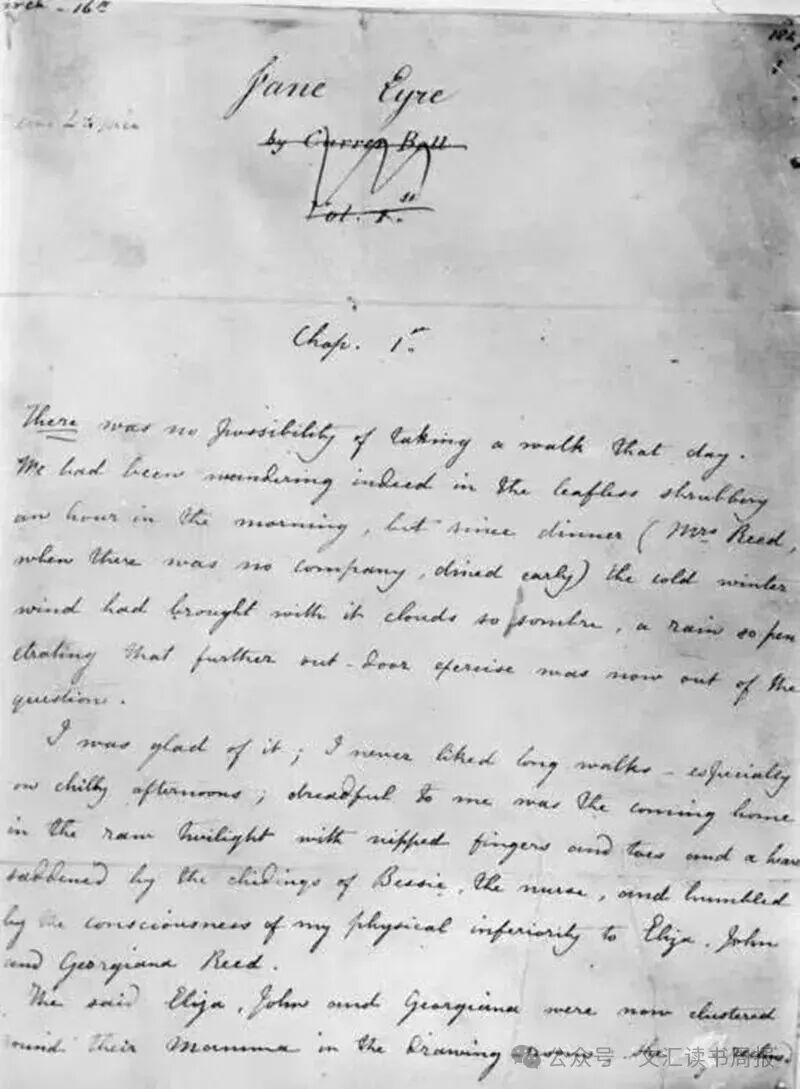 16th
Jane Eyre
by Currer Bell
Vol. 1.st
Chap. 1.st
There was no possibility of taking a walk that day.
We had been wandering indeed in the leafless shrubbery
an hour in the morning, but since dinner (Mrs Reed,
when there was no company, dined early) the cold winter
wind had brought with it clouds so sombre, a rain so pen
etrating that further out-door exercise was now out of the
question.
I was glad of it; I never liked long walks - especially
on chilly afternoons; dreadful to me was the coming home
in the raw twilight with nipped fingers and toes and a hear
saddened by the chidings of Bessie, the nurse, and humbled
by the consciousness of my physical inferiority to Eliza, John
and Georgiana Reed.
The said Eliza, John and Georgiana were now clustered
round their Mamma in the drawing-room: she
公众号 · 文汇读书周报